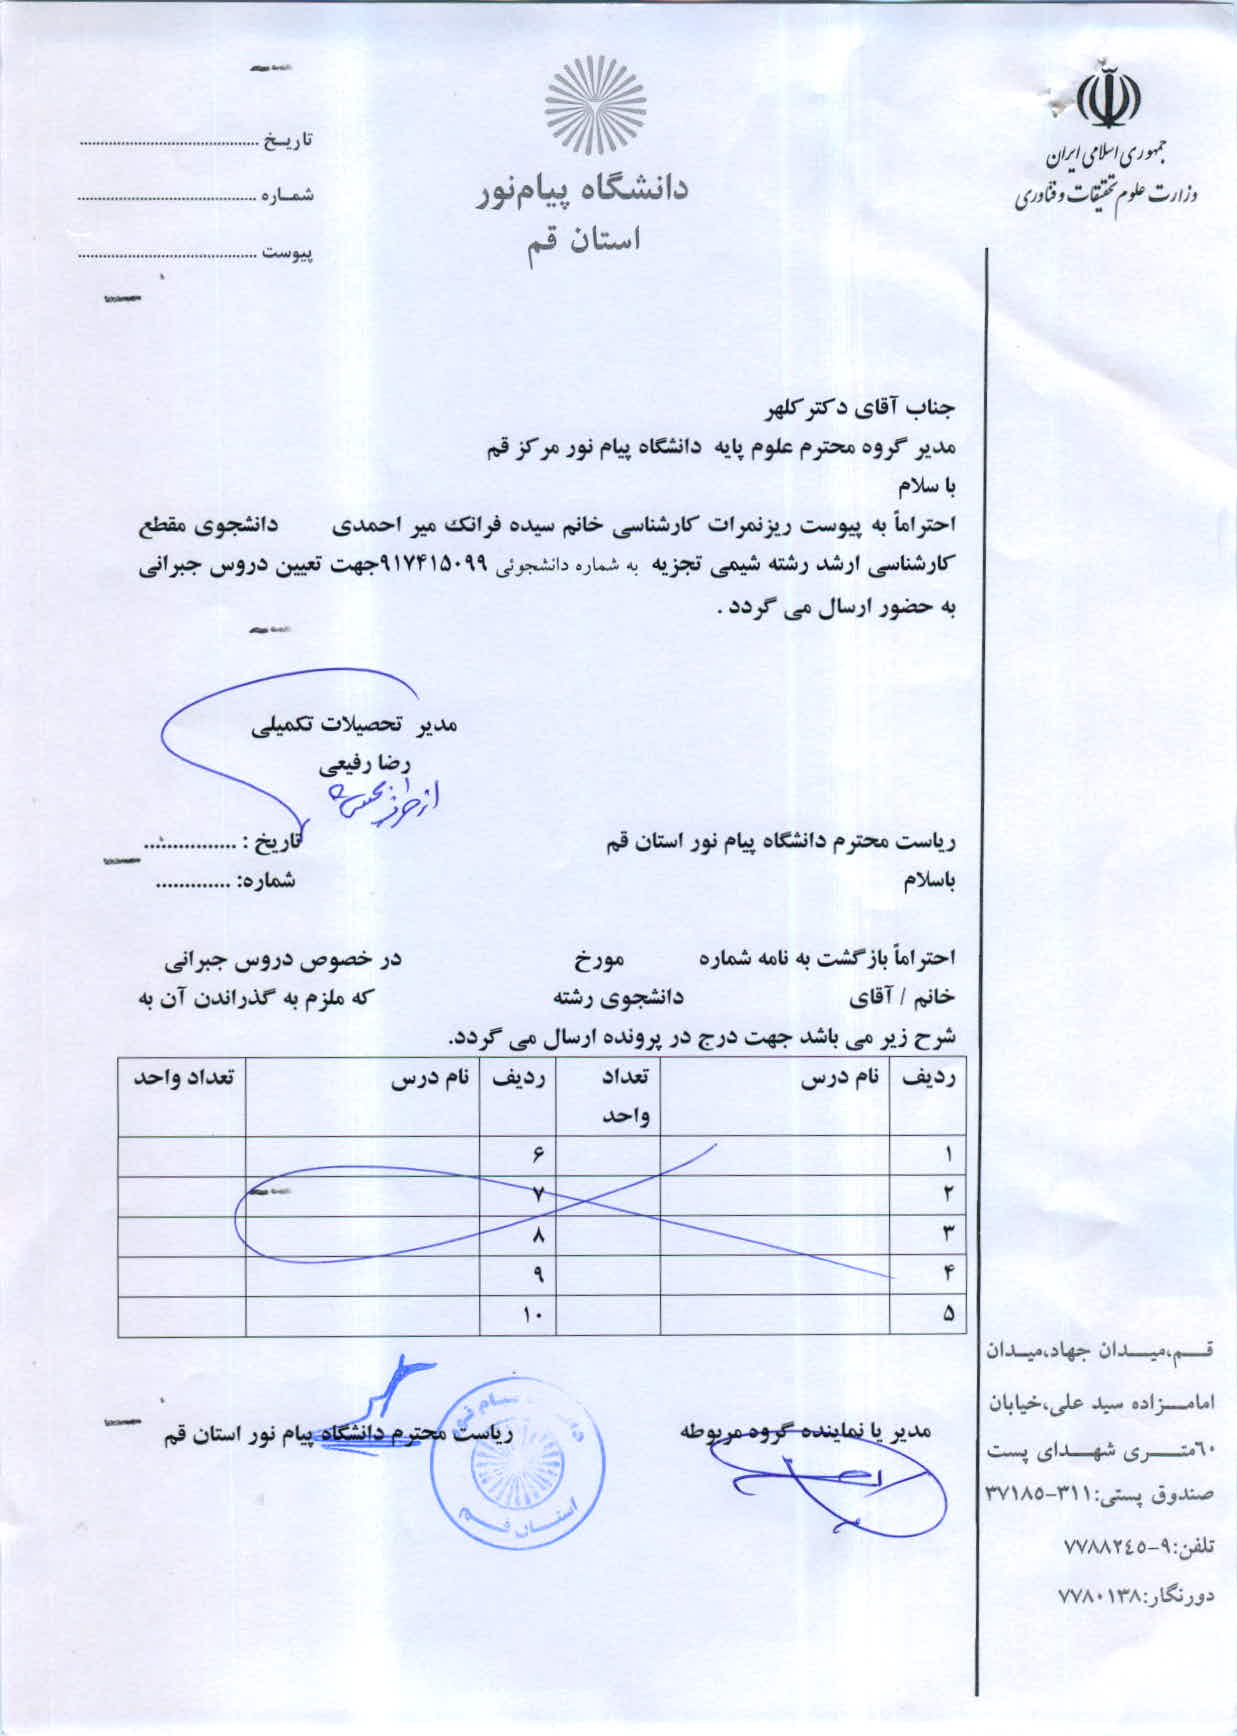 جمهوری اسلامی ایران
وزارت علوم تحقیقات و فناوری
دانشگاه پیام‌نور
استان قم
تاریخ ..........................................
شماره ..........................................
پیوست ..........................................
جناب آقای دکتر کلهر
مدیر گروه محترم علوم پایه دانشگاه پیام نور مرکز قم
با سلام
احتراماً به پیوست ریزنمرات کارشناسی خانم سیده فرانک میر احمدی دانشجوی مقطع
کارشناسی ارشد رشته شیمی تجزیه به شماره دانشجوئی ۹۱۷۴۱۵۰۹۹جهت تعیین دروس جبرانی
به حضور ارسال می گردد .
مدیر تحصیلات تکمیلی
رضا رفیعی
ریاست محترم دانشگاه پیام نور استان قم تاریخ : ................
باسلام شماره: .............
احتراماً بازگشت به نامه شماره مورخ در خصوص دروس جبرانی
خانم / آقای دانشجوی رشته که ملزم به گذراندن آن به
شرح زیر می باشد جهت درج در پرونده ارسال می گردد.
ردیف نام درس تعداد واحد ردیف نام درس تعداد واحد
۱ ۶
۲ ۷
۳ ۸
۴ ۹
۵ ۱۰
مدیر یا نماینده گروه مربوطه ریاست محترم دانشگاه پیام نور استان قم
استان قم
قم،میدان جهاد،میدان
امامزاده سید علی،خیابان
٦٠متری شهدای پست
صندوق پستی:۳۱۱-۳۷۱۸۵
تلفن:۹-۷۷۸۸۲٤۵
دورنگار:۷۷۸۰۱۳۸